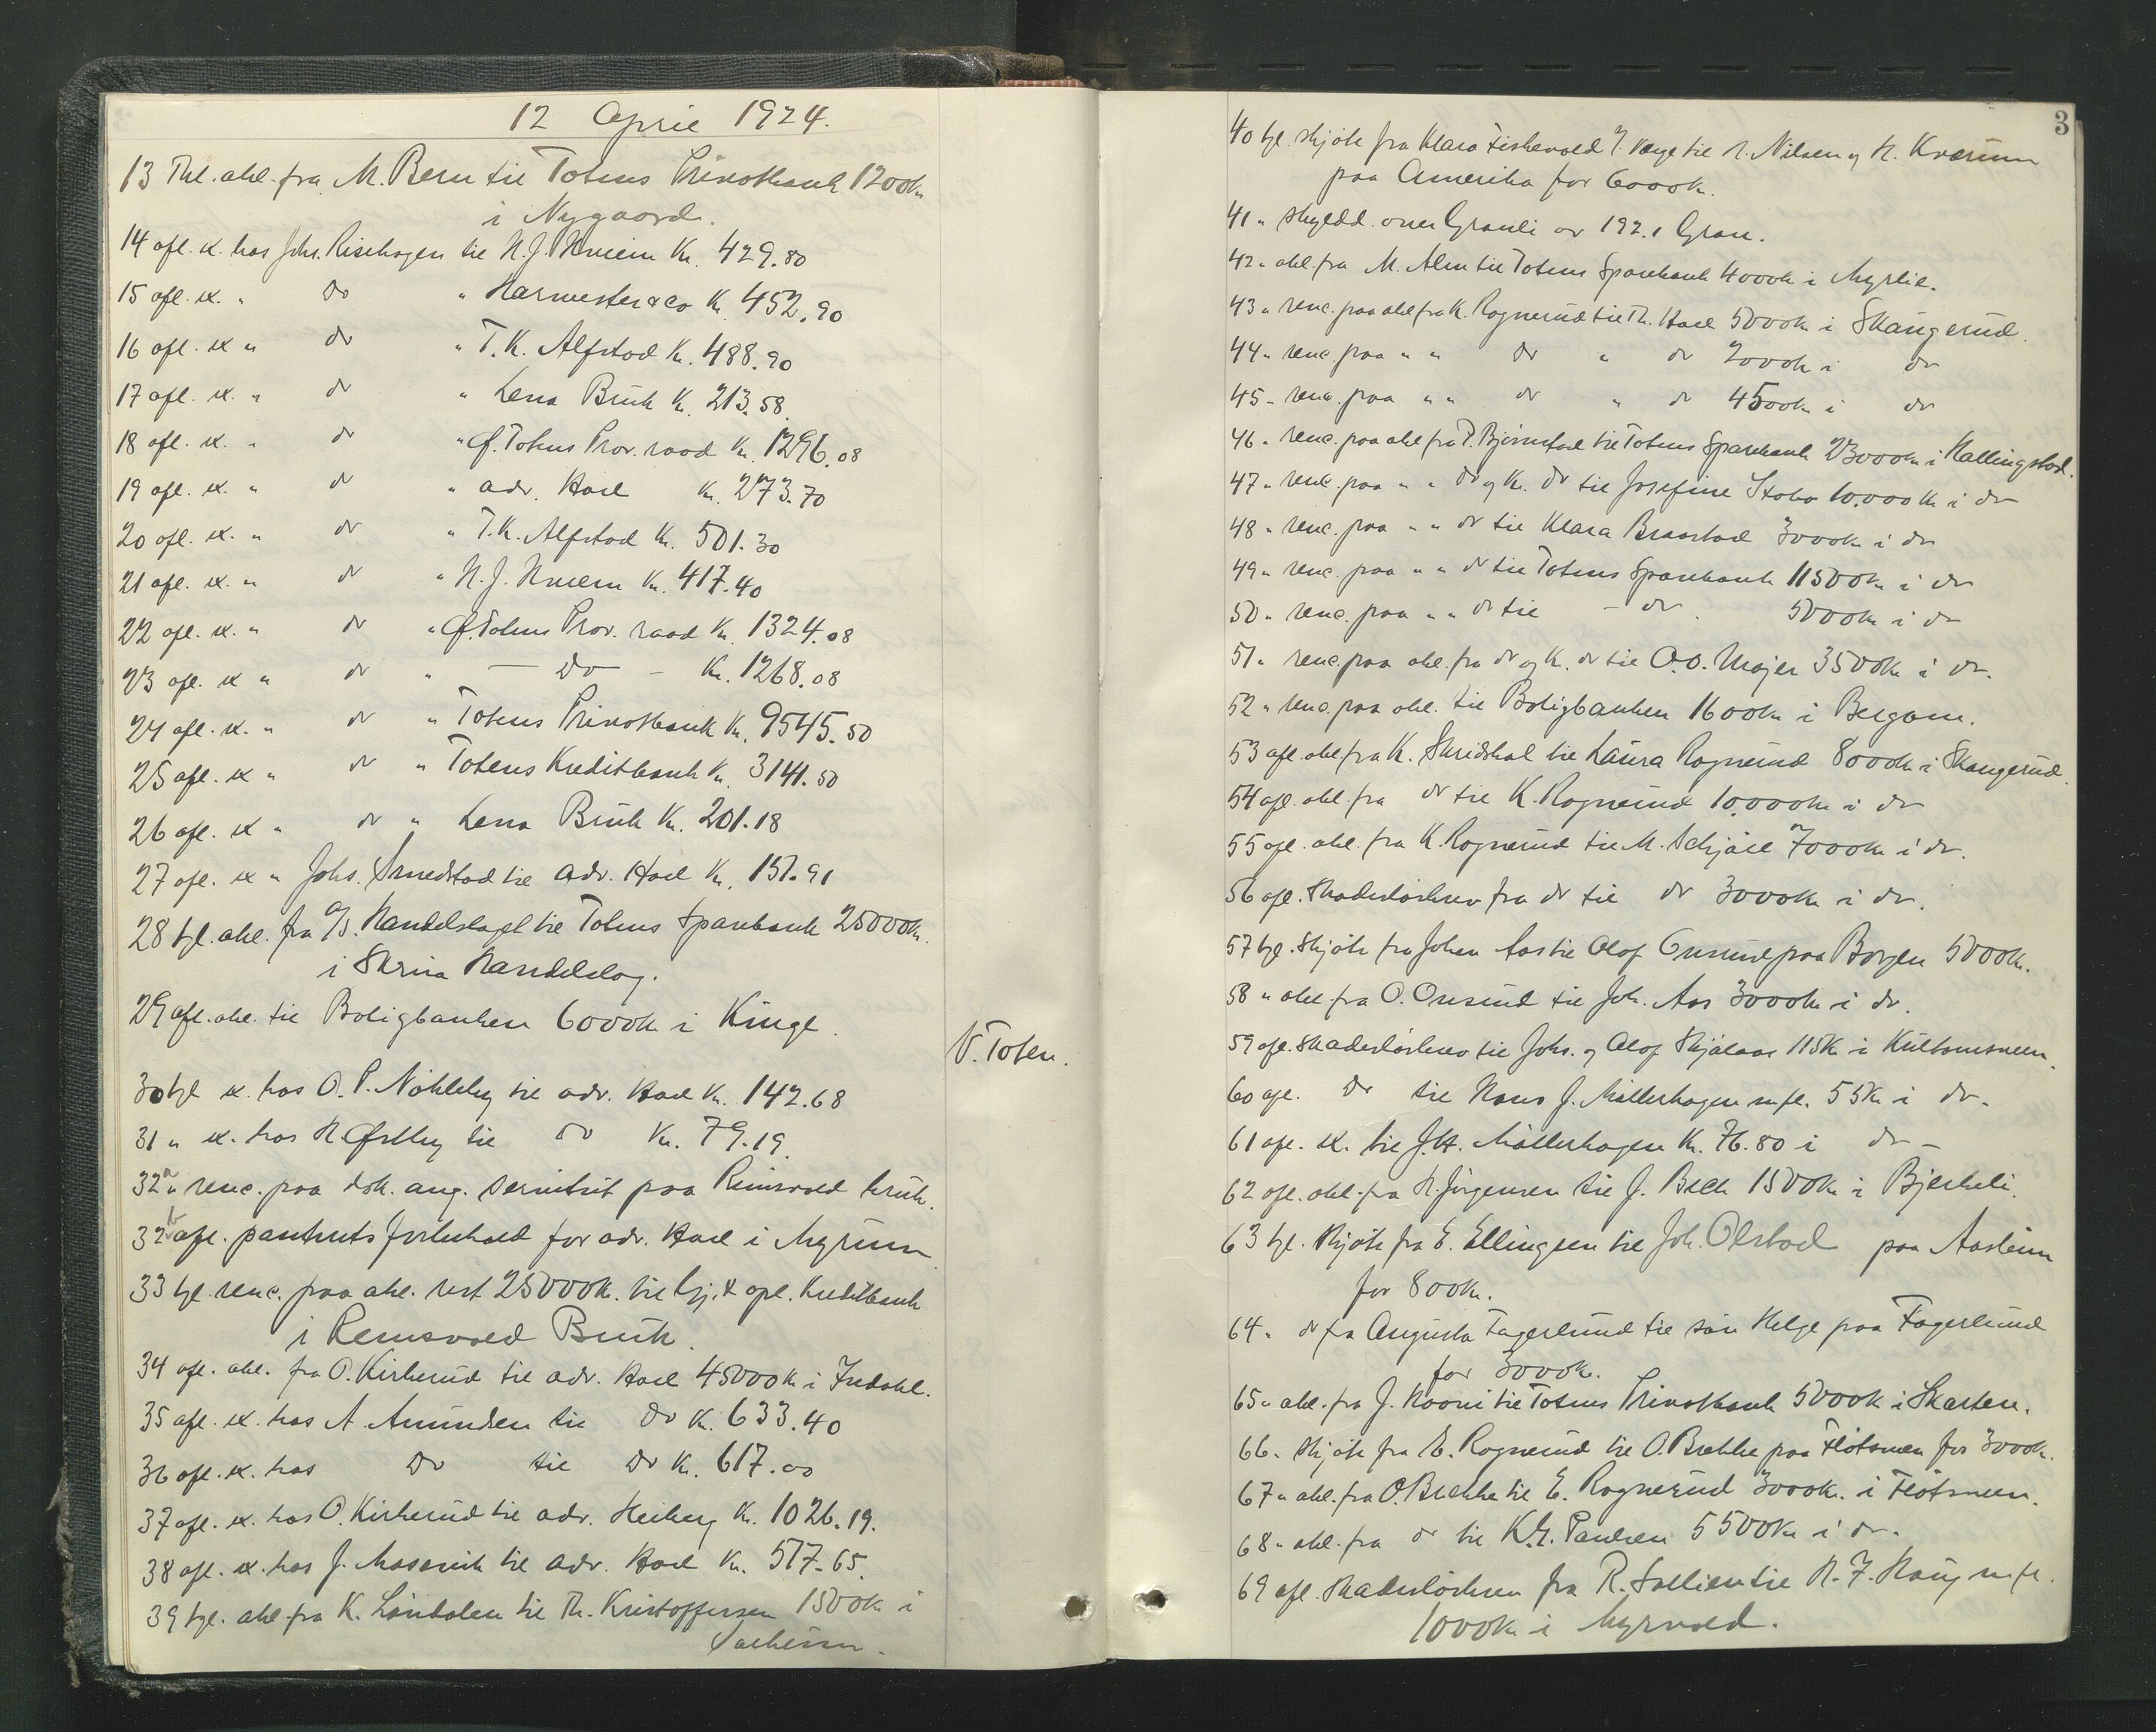 12 April 1924.
13 Thl. obl. fra M. Bern til Totens Privatbank 1200 kr
i Nygaard.
14 afl. ex. hos Johs. Risehagen til N. J. Kr. 429.80
15 afl. ex. " Do " Harvester & Co Kr. 452.90
16 afl. ex " do " T. K. Alfstad Kr. 488.90
17 afl. ex. " do " Lena Bruk Kr. 213.58
18 afl. ex. " do " Ø. Totens Prov. raad Kr. 1296.08
19 afl. ex. " do " adv. Hoel Kr. 273.70
20 afl. ex. " do " T. K. Alfstad Kr. 501.30
21 afl. ex. " do " N. J. Kr. 417.40
22 afl. ex. " do " Ø. Totens Prov. raad Kr. 1324.08
23 afl. ex " do " — Do — Kr. 1268.08
24 afl. ex. " do " Totens Privatbank Kr. 9545.50
25 afl. ex " do " Totens Kreditbank Kr. 3141.50
26 afl. ex " do " Lena Bruk Kr. 201.18
27 afl. ex " Johs. Smedstad til adv. Hoel Kr. 151.91
28 tgl. obl. fra A/S. Handelslaget til Totens Sparebank 25000 kr.
i Skreia Handelslag.
29 afl. obl. til Boligbanken 6000 kr i Kinge.
V. Toten.
30 tgl ex. hos O. P. Nøkleby til adv. Hoel Kr. 142.68
31 " ex. hos H. Østby til do Kr. 79.19
32a " renc. paa dok. ang. servitut paa Reinsvold bruk.
32b afl. pantretsforbehold for adv. Hoel i Myrum
33 tgl. renc. paa obl. rest 25000 kr. til Gj. & opl. Kreditbank
i Reinsvoll Bruk.
34 afl. obl. fra O. Kirkerud til adv. Hoel 45000 kr i
35 afl. ex. hos A. Amundsen til Do Kr. 633.40
36 afl. ex. hos Do til Do Kr. 617.00
37 afl. ex. hos O. Kirkerud til adv. Heiberg Kr. 1026.19.
38 afl. ex. hos J. til adv. Hoel Kr. 517.65.
39 tgl. obl. fra K. til Th. Kristoffersen 1500 kr i
Solheim.
3
40 tgl. skjøte fra Klara Fiskevold v. Verge til N. Nilsen og H. Kværum
paa Amerika for 6000 kr.
41 " skyldd. over Granli av 192.1 Gran.
42 " obl. fra M. Alm til Totens Sparebank 4000 kr i Myrlie.
43 " renc. paa obl. fra K. Rognerud til Th. Hoel 5000 kr i Skaugerud.
44 " renc. paa " " do " do 2000 kr i do
45 " renc. paa " " do " do 4500 kr i do
46 " renc. paa obl. fra P. Bjørnstad til Totens Sparebank 23000 kr i Kallingstad.
47 " renc. paa " " do og K. do til Josefine Stabo 10.000 kr i do
48 " renc. paa " " do til Klara Braastad 3000 kr i do
49 " renc. paa " " do til Totens Sparebank 11500 kr i do
50 " renc. paa " " do til — do 5000 kr i do
51 " renc. paa obl. fra do og K. do til O. O. Majer 3500 kr i do.
52 " renc. paa obl. til Boligbanken 1600 kr i Bergum.
53 afl. obl. fra K. Skridshol til Laura Rognerud 8000 kr i Skaugerud.
54 afl. obl. fra do til K. Rognerud 10.000 kr i do
55 afl. obl. fra K. Rognerud til M. Schjøll 7000 kr i do.
56 afl. Skadesløsbrev fra do til do 3000 kr i do.
57 tgl. Skjøte fra Johan Aas til Olaf Onsrud paa Borgen 5000 kr.
58 " obl. fra O. Onsrud til Joh. Aas 3000 kr i do.
59 afl. Skadesløsbrev til Johs. og Olaf 115 kr i
60 afl. Do til Hans J. Møllerhagen m.fl. 55 kr i do.
61 afl. ex. til J. H. Møllerhagen Kr. 76.80 i do —
62 afl. obl. fra H. Jørgensen til J. Beck 1500 kr i Bjerkeli.
63 tgl. Skjøte fra E. Ellingsen til Joh. Olstad paa Aasheim
for 800 kr.
64 " do fra Augusta Fagerlund til søn Helge paa Fagerlund
for 3000 kr.
65 " obl. fra J. til Totens Privatbank 5000 kr i Skarten.
66 " Skjøte fra E. Rognerud til O. Brekke paa Fløtmoen for 3000 kr.
67 " obl. fra O. Brekke til E. Rognerud 3000 kr. i Fløtmoen.
68 " obl. fra do til K. E. Paulsen 5500 kr i do.
69 afl. Skadesløsbrev fra R. Sollien til H. F. Haug m.fl.
1000 kr i Myrvold.